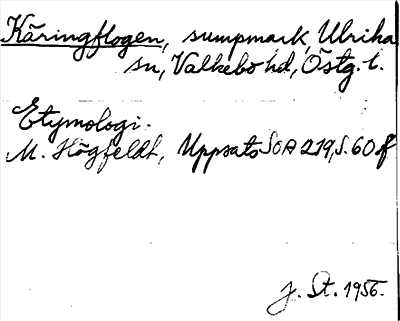 Käringflogen, sumpmark, Ulrika
sn, Valkebo hd, Östg. l.
Etymologi.
M. Högfeldt, Uppsats SOA 219, S. 60 f
J. St. 1956.